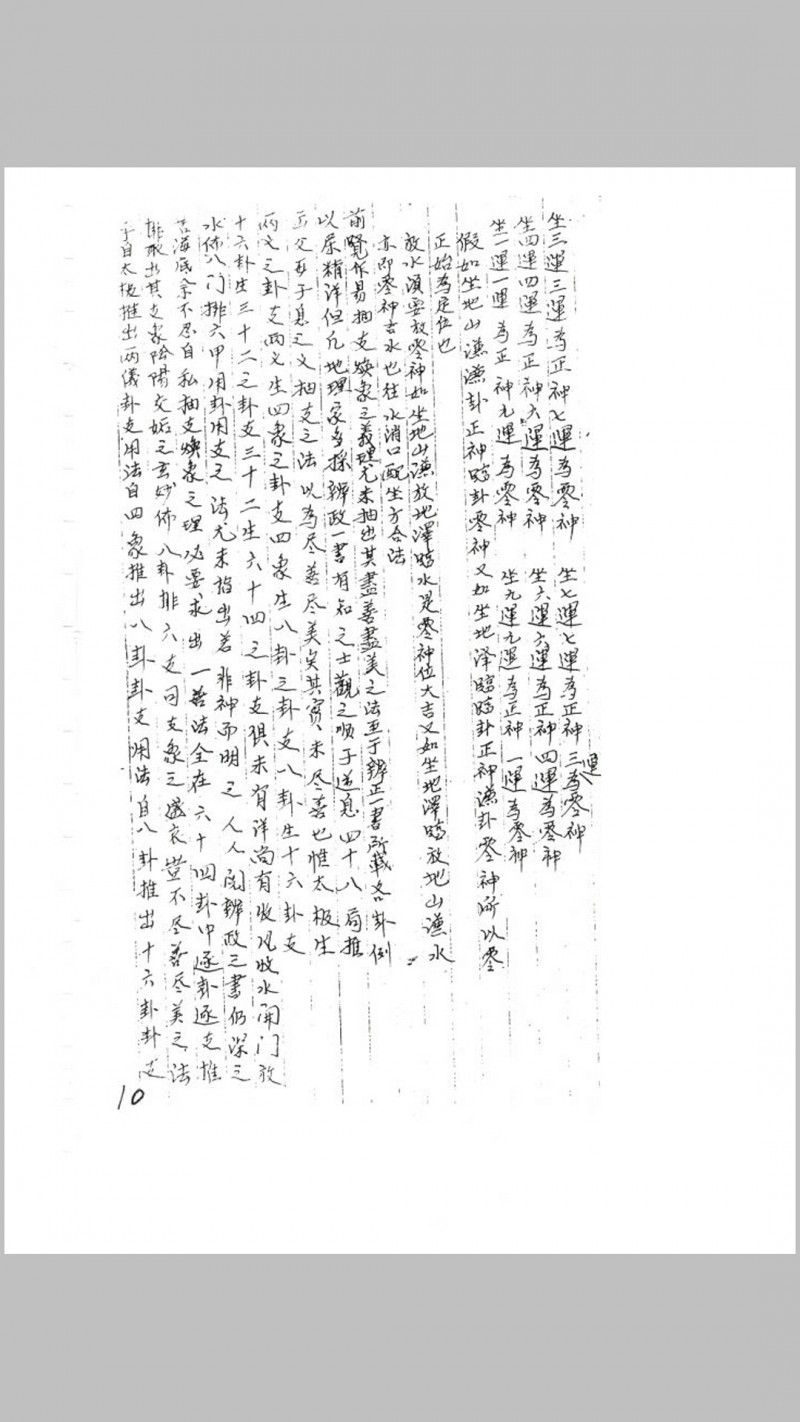 坐三運三運為正神七運為零神　坐七運七運為正神三運為零神
坐四運四運為正神六運為零神　坐六運六運為正神四運為零神
坐一運一運為正神九運為零神　坐九運九運為正神一運為零神
假如坐地山谦谦卦正神臨卦零神又如坐地泽臨臨卦正神谦卦零神所以零
正始為定位也
放水須要放零神如坐地山谦放地澤臨水是零神位大吉又如坐地澤臨放地山谦水
亦即零神吉水也往水消口配坐方合法
前賢作易抽爻煥象之義理尤未抽出其盡善盡美之法至于辨正一書所載各卦例
以尽精详但凡地理家多採辨政一書有知之士觀之顺子逆息四十八局推
父母子息之义抽爻之法以為尽善尽美矣其實未尽善也惟太极生
两义之卦爻两义生四象之卦爻四象生八卦之卦爻八卦生十六卦爻
十六卦生三十二之卦爻三十二生六十四之卦爻俱未有详尚有收風收水開门放
水佈八门排六甲用卦用爻之法尤未指出若非神而明之人人阅辨政之書仍深之
苦海底余不忍自私抽爻煥象之理必要求出一善法全在六十四卦中逐卦逐爻推
排取出其爻象阴陽交姤之玄妙佈八卦排六爻问爻象之盛衰豈不尽善尽美之法
于自太极推出两儀卦爻用法自四象推出八卦卦爻用法自八卦推出十六卦卦爻
10